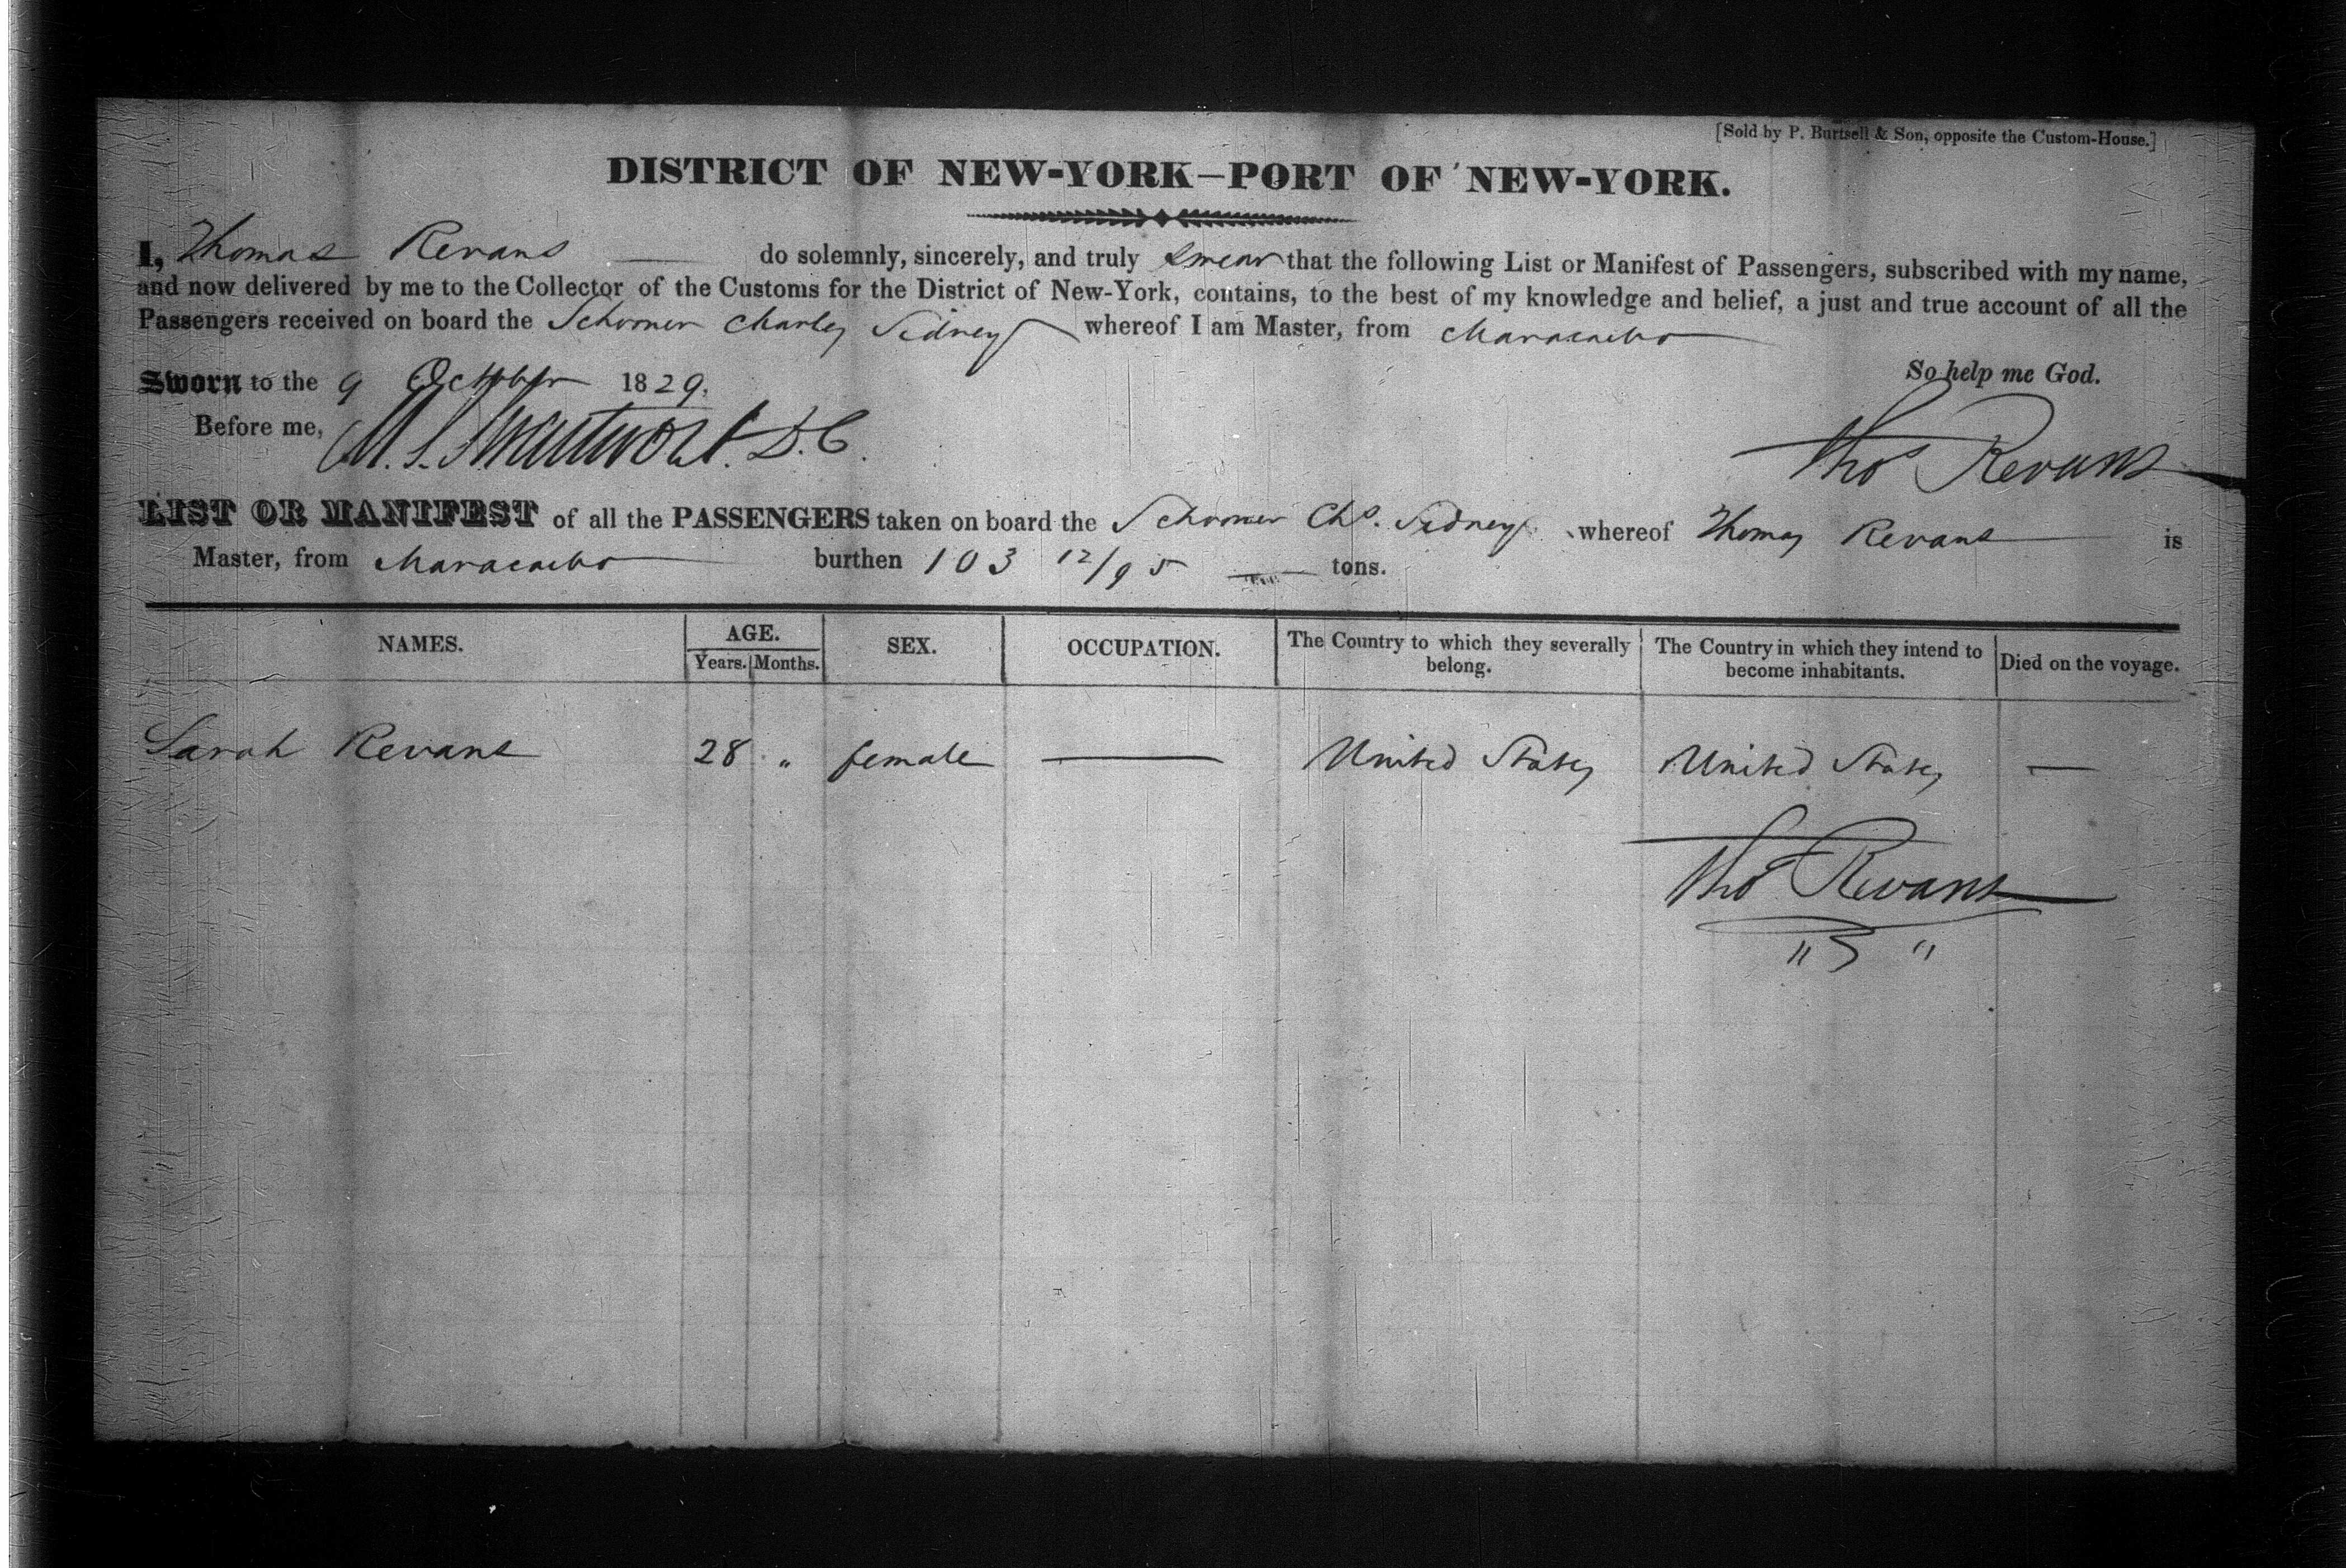 [Sold by P. Burtsell & Son, opposite the Custom-House.]
DISTRICT OF NEW-YORK—PORT OF NEW-YORK.
I, Thomas Revans do solemnly, sincerely, and truly swear that the following List or Manifest of Passengers, subscribed with my name,
and now delivered by me to the Collector of the Customs for the District of New-York, contains, to the best of my knowledge and belief, a just and true account of all the
Passengers received on board the Schooner Charles Sidney whereof I am Master, from Maracaibo
So help me God.
Sworn to the 9 October 1829.
Before me, M. S. Swartwout. D. C.
Thos Revans
LIST OR MANIFEST of all the PASSENGERS taken on board the Schooner Chs. Sidney whereof Thomas Revans is
Master, from Maracaibo burthen 103 12/95 tons.
NAMES. AGE. Years. Months. SEX. OCCUPATION. The Country to which they severally belong. The Country in which they intend to become inhabitants. Died on the voyage.
Sarah Revans 28 " female — United States United States —
Thos Revans